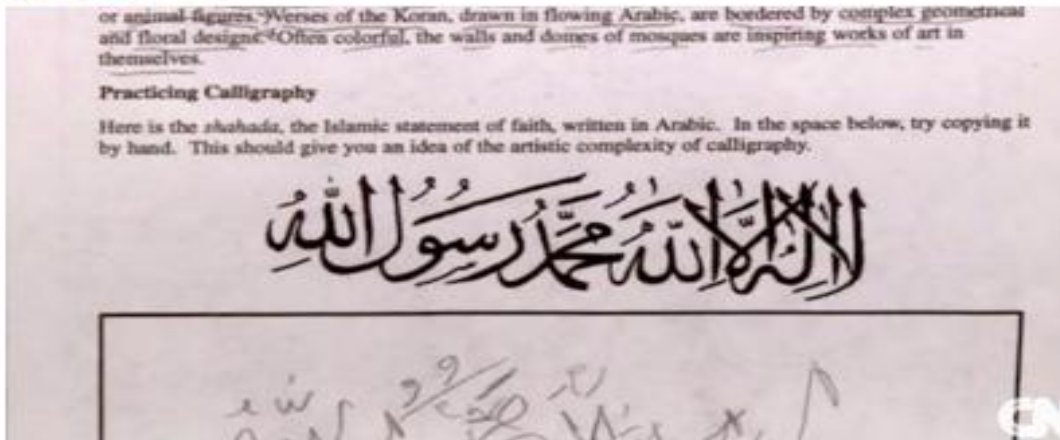 or animal figures. Verses of the Koran, drawn in flowing Arabic, are bordered by complex geometrical
and floral designs. Often colorful, the walls and domes of mosques are inspiring works of art in
themselves.
Practicing Calligraphy
Here is the shahada, the Islamic statement of faith, written in Arabic. In the space below, try copying it
by hand. This should give you an idea of the artistic complexity of calligraphy.
لا إله إلا الله محمد رسول الله